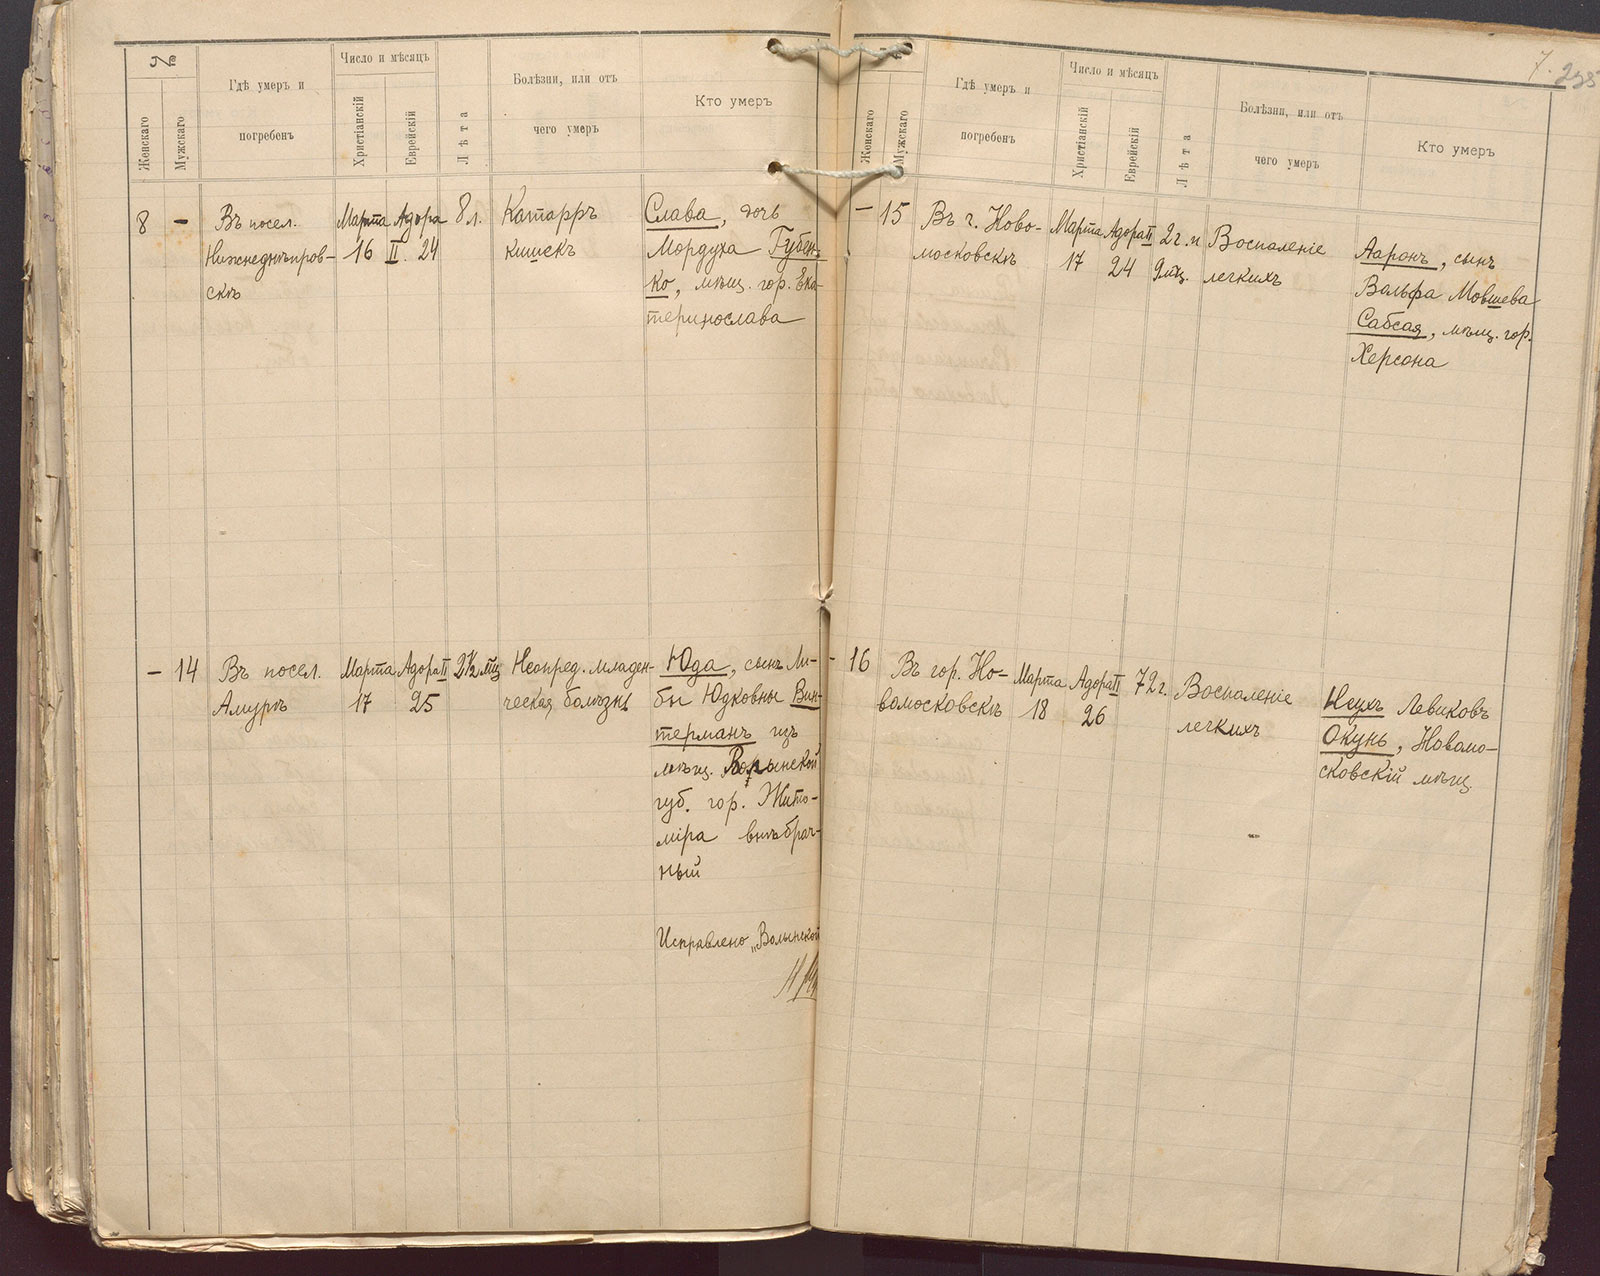 №
Женскаго
Мужскаго
Гдѣ умеръ и
погребенъ
Число и мѣсяцъ
Христіанскій
Еврейскій
Лѣта
Болѣзни, или отъ
чего умеръ
Кто умеръ
8
–
Въ посел.
Нижнеднѣпров-
скѣ
Марта
16
Адора
II 24
8 л.
Катарръ
кишекъ
Слава, дочь
Мордуха Губен-
ко, мѣщ. гор. Ека-
теринослава
–
14
Въ посел.
Амурѣ
Марта
17
Адора II
25
2½ мѣц
Неопред. младен-
ческая болѣзнь
Юда, сынъ Ли-
бы Юдковны Вин-
терманъ изъ
мѣщ. Волынской
губ. гор. Жито-
міра внѣбрач-
ный
Исправлено „Волынской
7.
Женскаго
Мужскаго
Гдѣ умеръ и
погребенъ
Число и мѣсяцъ
Христіанскій
Еврейскій
Лѣта
Болѣзни, или отъ
чего умеръ
Кто умеръ
–
15
Въ г. Ново-
московскѣ
Марта
17
Адора II
24
2 г. и
9 мѣц.
Воспаленіе
легкихъ
Ааронъ, сынъ
Вольфа Мовшева
Сабсая, мѣщ. гор.
Херсона
–
16
Въ гор. Но-
вомосковскѣ
Марта
18
Адора II
26
72 г.
Воспаленіе
легкихъ
Неухъ Левиковъ
Окунь, Новомо-
сковскій мѣщ.